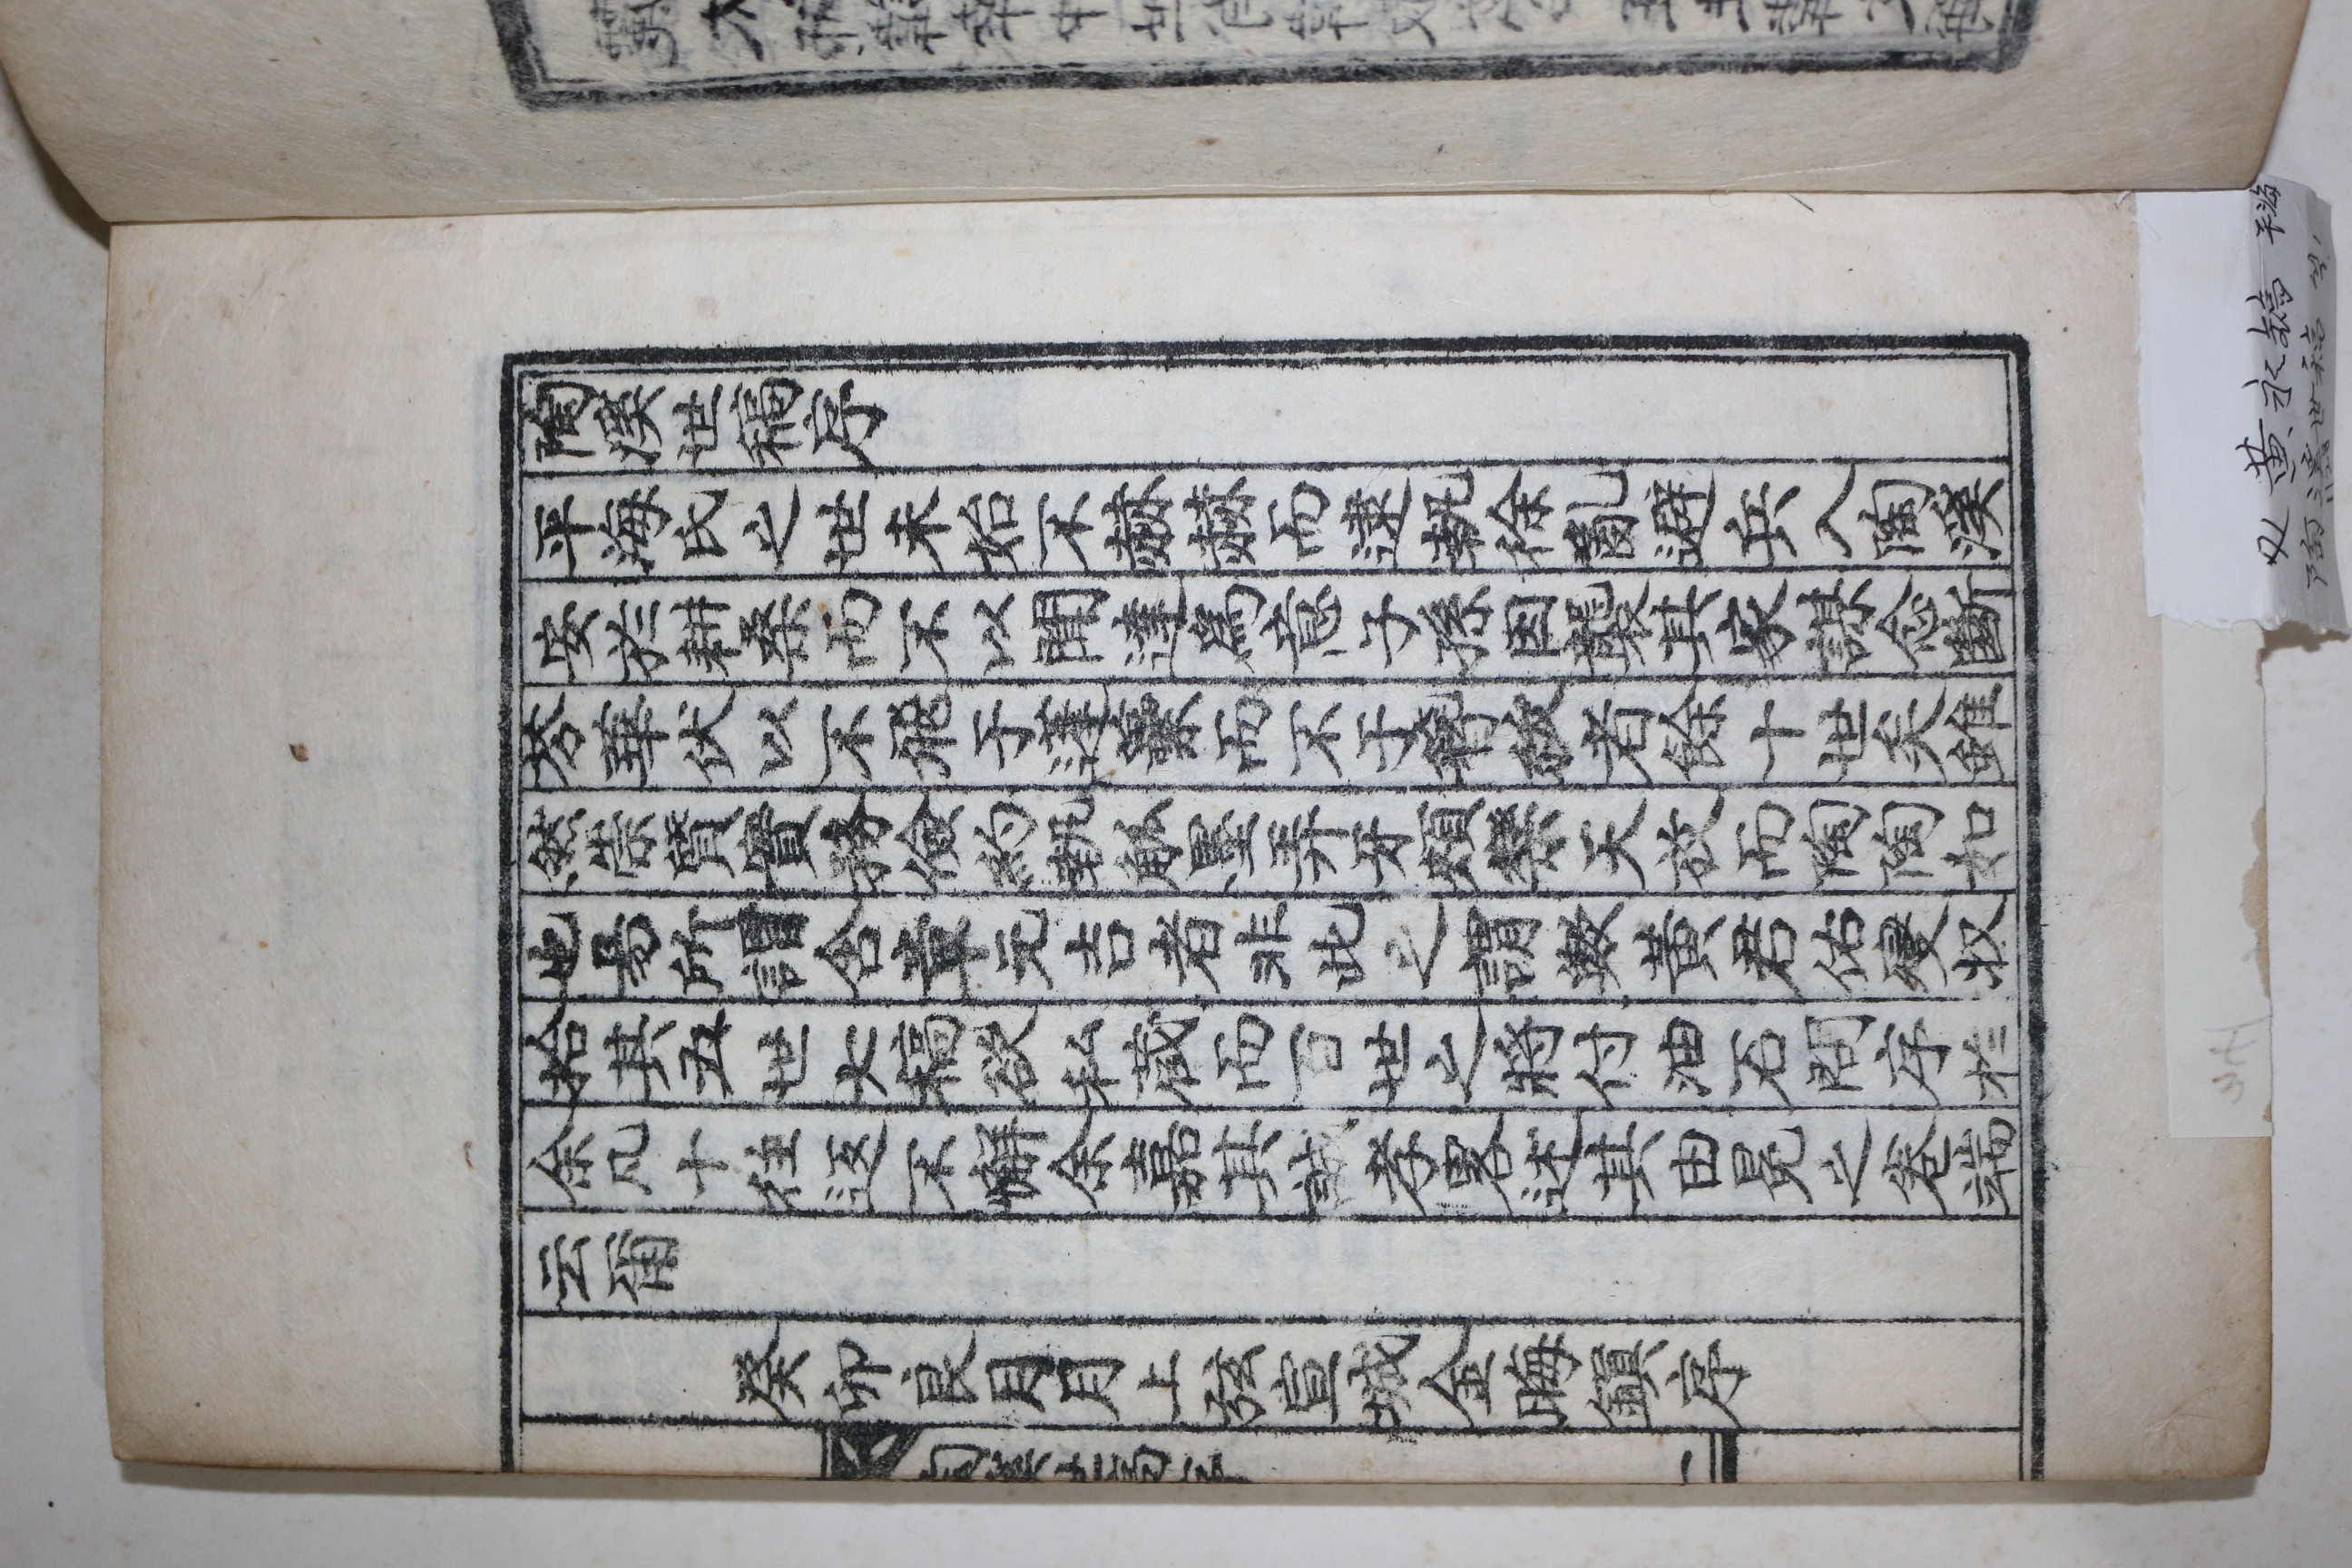 陶溪世稿序
平海氏之世未始不赫赫而逮執徐亂避兵入陶溪
安於耕桑而不以聞達爲意子孫因襲其家謀念斷
芬華伏以不飛于蓬藁而不于蕣
者餘十世矣雖
然崇質實務儉約執觚墨弄牙頰樂天放而陶陶如
也易所謂含章元吉者非此之謂歟黃君佑燮収
拾其五世七稿欲私蔵而百世之將付油石問序於
余凡十往返不懈余嘉其誠孝畧述其由冕之卷端
云爾
癸卯良月月上弦宣城金晦鎭序
黃永鎬 平海
陶溪世稿